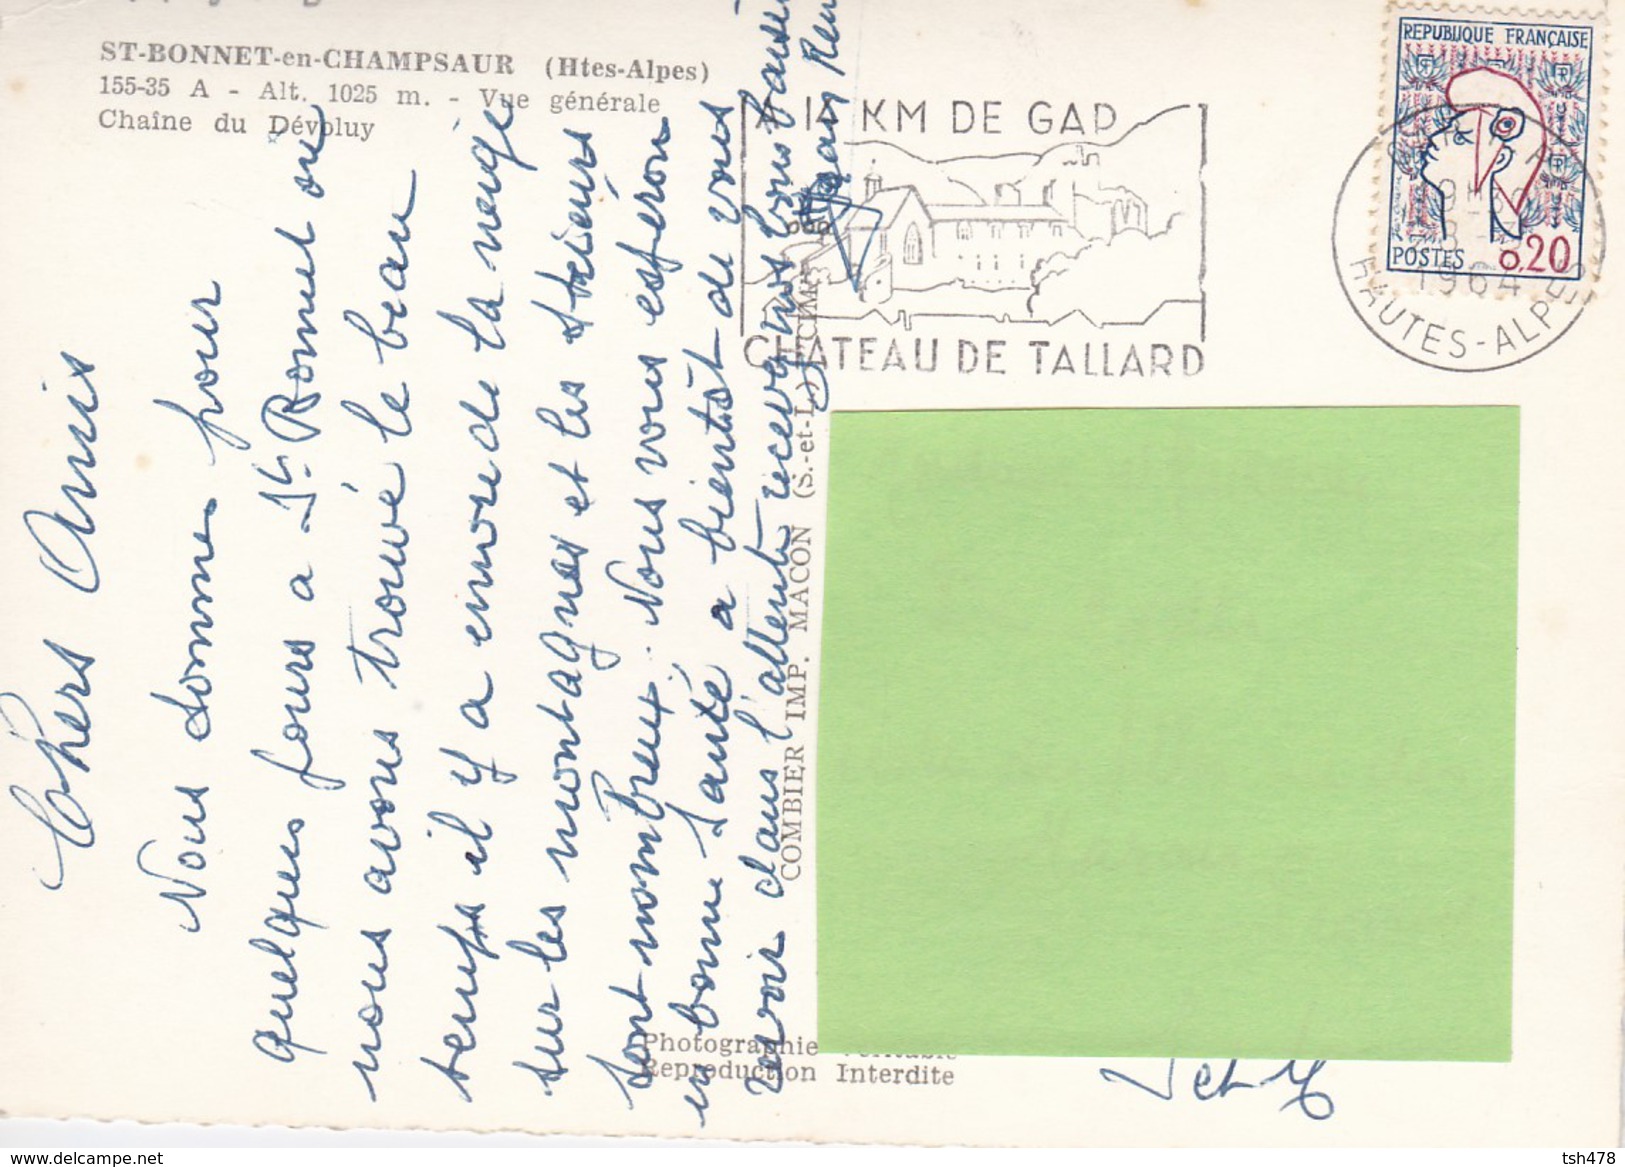 ST-BONNET-en-CHAMPSAUR (Htes-Alpes)
155-35 A - Alt. 1025 m. - Vue générale
Chaîne du Dévoluy
A 14 KM DE GAP
CHATEAU DE TALLARD
REPUBLIQUE FRANÇAISE
POSTES 0,20
1964
HAUTES-ALPES
Chers Amis
Nous sommes pour
quelques jours a St Bonnet où
nous avons trouvé le beau
temps il y a encore de la neige
sur les montagnes et les skieurs
sont nombreux. Nous vous espéron
en bonne Santé a bientôt de vous
revoir dans l'attente recever nos bons baisers
Jean
COMBIER IMP. MACON (S.-et-L.) CIM
Photographie Véritable
Reproduction Interdite
Set
www.delcampe.net
tsh478